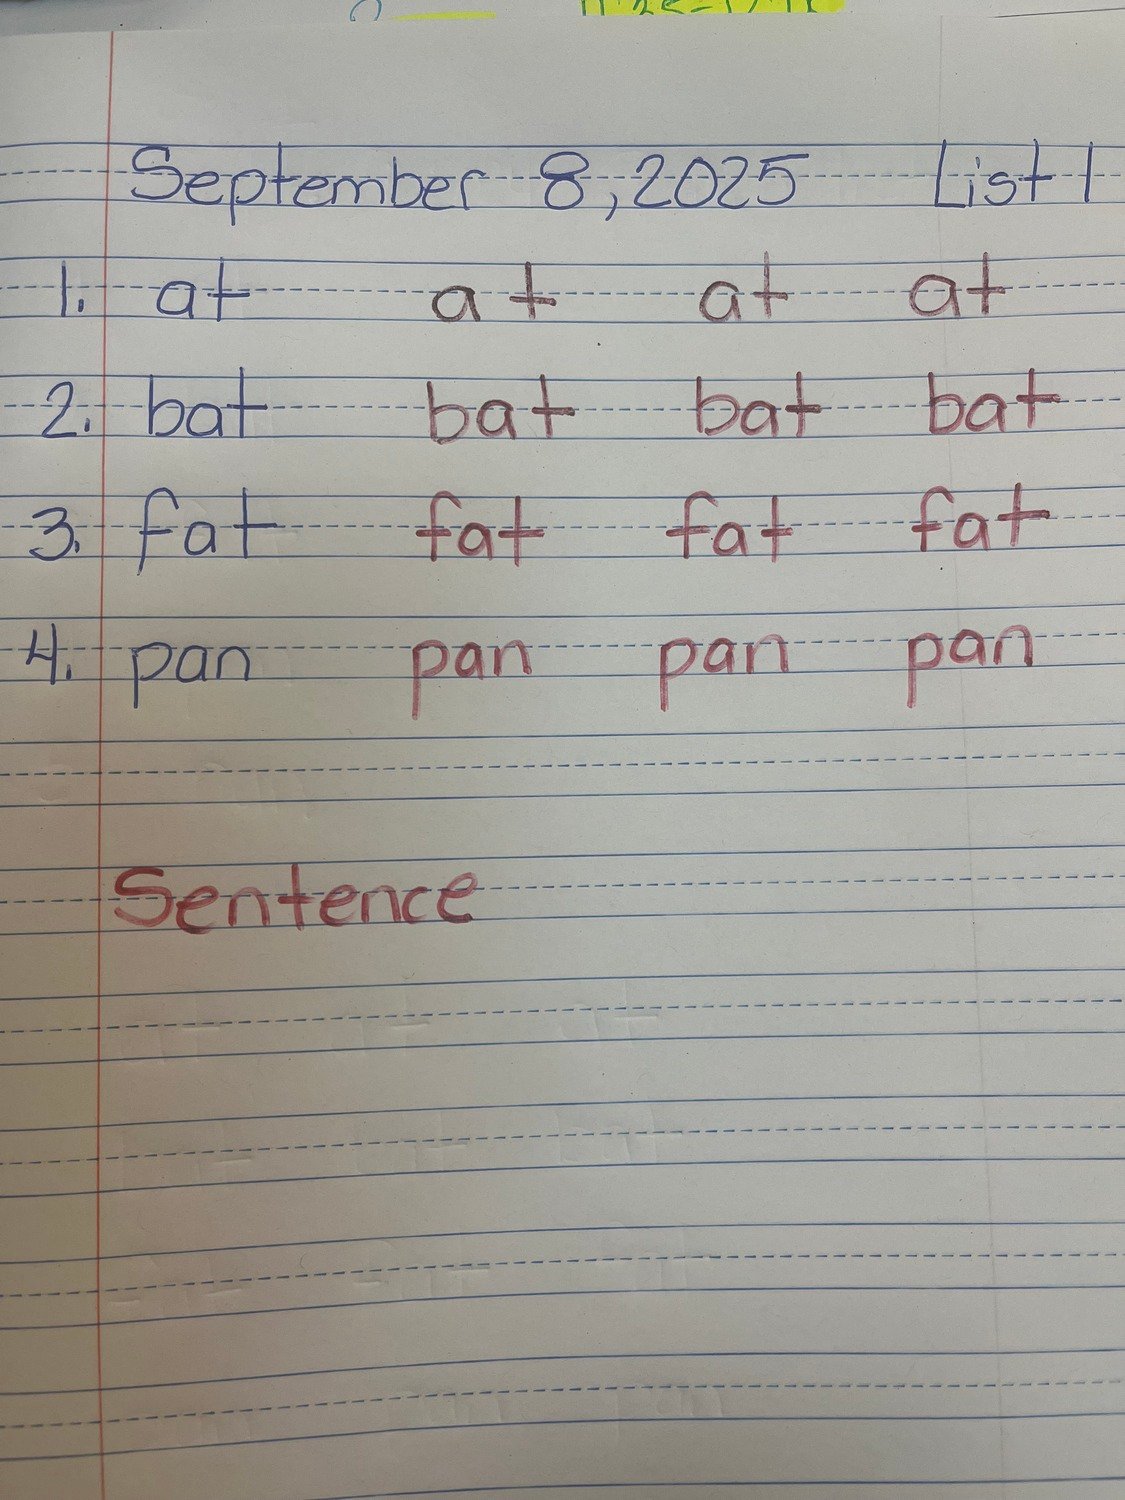 September 8, 2025 List 1
1. at at at at
2. bat bat bat bat
3. fat fat fat fat
4. pan pan pan pan
Sentence